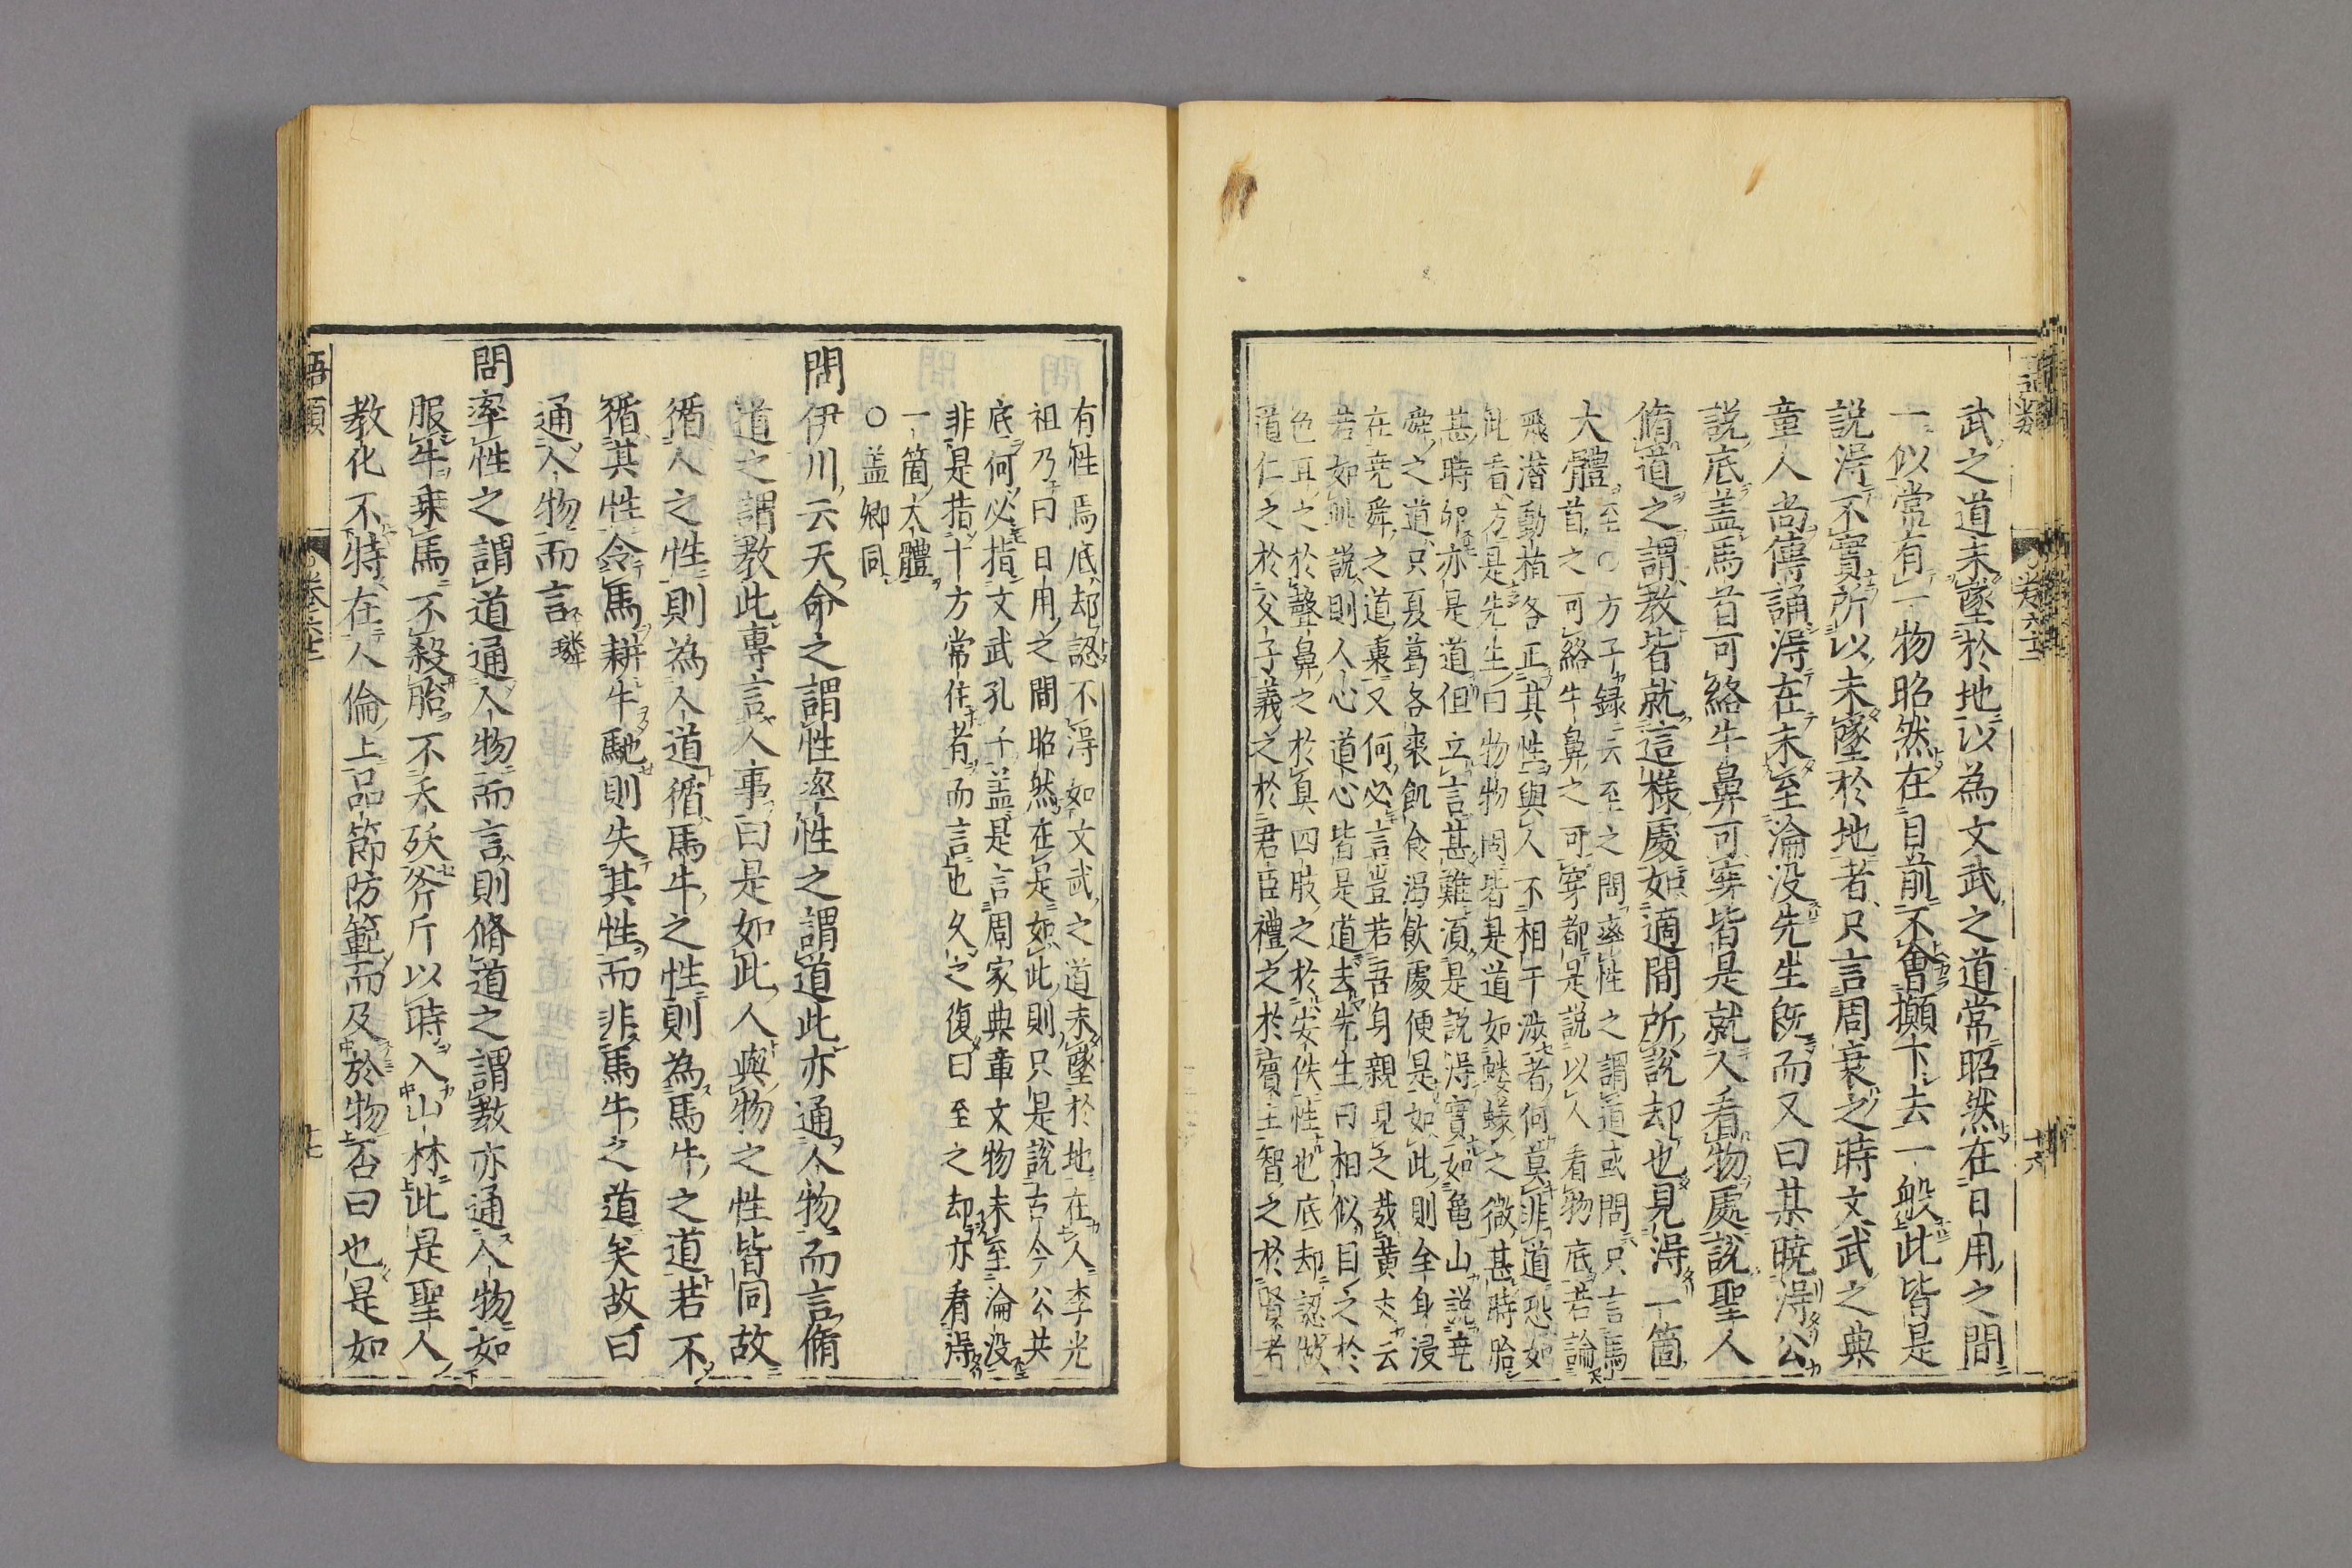 武之道未墜於地以為文武之道常昭然在日用之間
一似常有一物昭然在目前不會攧下去一般此皆是
說淂不實所以未墜於地者只言周衰之時文武之典
章人尚傳誦淂在未至淪没先生既而又曰某曉淂公
說底盖馬首可絡牛鼻可穿皆是就人看物處說聖人
脩道之謂教皆就這樣處如適間所說却也見淂一箇
大體至○方子録云至之問率性之謂道或問只言馬
首之可絡牛鼻之可穿都是說以人看物底若論
飛潜動植各正其性與人不相干渉者何莫非道恐如
此看方是先生曰物物固皆是道如螻蟻之微甚時胎
甚時卵亦是道但立言甚難湏是説淂實如亀山説尭
舜之道只夏葛冬裘飢食渴飲處便是如此則全身浸
在尭舜之道裏又何必言豈若吾身親見之哉黄丈云
若如此說則人心道心皆是道去先生曰相似目之於
色耳之於聲鼻之於臭四肢之於安佚性也底却認做
道仁之於父子義之於君臣禮之於賓主智之於賢者
有性焉底却認不淂如文武之道未墜於地在人李光
祖乃曰日用之間昭然在是如此則只是說古今公共
底何必指文武孔子盖是言周家典章文物未至淪没
非是指十方常住者而言也久之復曰至之却亦看淂
一箇大體
○盖卿同
問伊川云天命之謂性率性之謂道此亦通人物而言脩
道之謂教此專言人事曰是如此人與物之性皆同故
循人之性則為人道循馬牛之性則為馬牛之道若不
循其性令馬耕牛馳則失其性而非馬牛之道矣故曰
通人物而言璘
問率性之謂道通人物而言則脩道之謂教亦通人物如
服牛乗馬不殺胎不夭殀斧斤以時入山林此是聖人
教化不特在人倫上品節防範而及於物否曰也是如